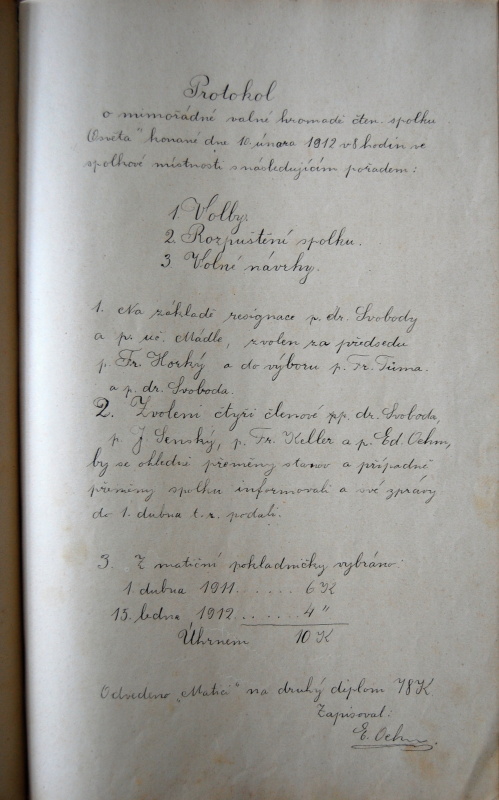 Protokol
o mimořádné valné hromadě čten. spolku
„Osvěta" konané dne 10. února 1912 v 8 hodin ve
spolkové místnosti s následujícím pořadem:
1. Volby.
2. Rozpuštění spolku.
3. Volné návrhy.
1. Na základě resignace p. dr. Svobody
a p. uč. Mádle, zvolen za předsedu
p. Fr. Horký a do výboru p. Fr. Tůma
a p. dr. Svoboda.
2. Zvoleni čtyři členové pp. dr. Svoboda,
p. J. Senský, p. Fr. Keller a p. Ed. Oehm,
by se ohledně přeměny stanov a případné
přeměny spolku informovali a své zprávy
do 1. dubna t. r. podali.
3. Z matiční pokladničky vybráno:
1. dubna 1911 . . . . . . 6 K
15. ledna 1912 . . . . . . 4 "
Úhrnem 10 K
Odvedeno „Matici" na druhý diplom 78 K.
Zapisoval:
E. Oehm.